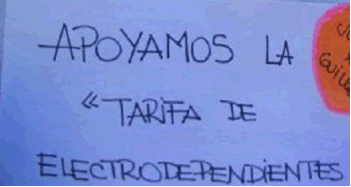 APOYAMOS LA
"TARIFA DE
ELECTRODEPENDIENTES